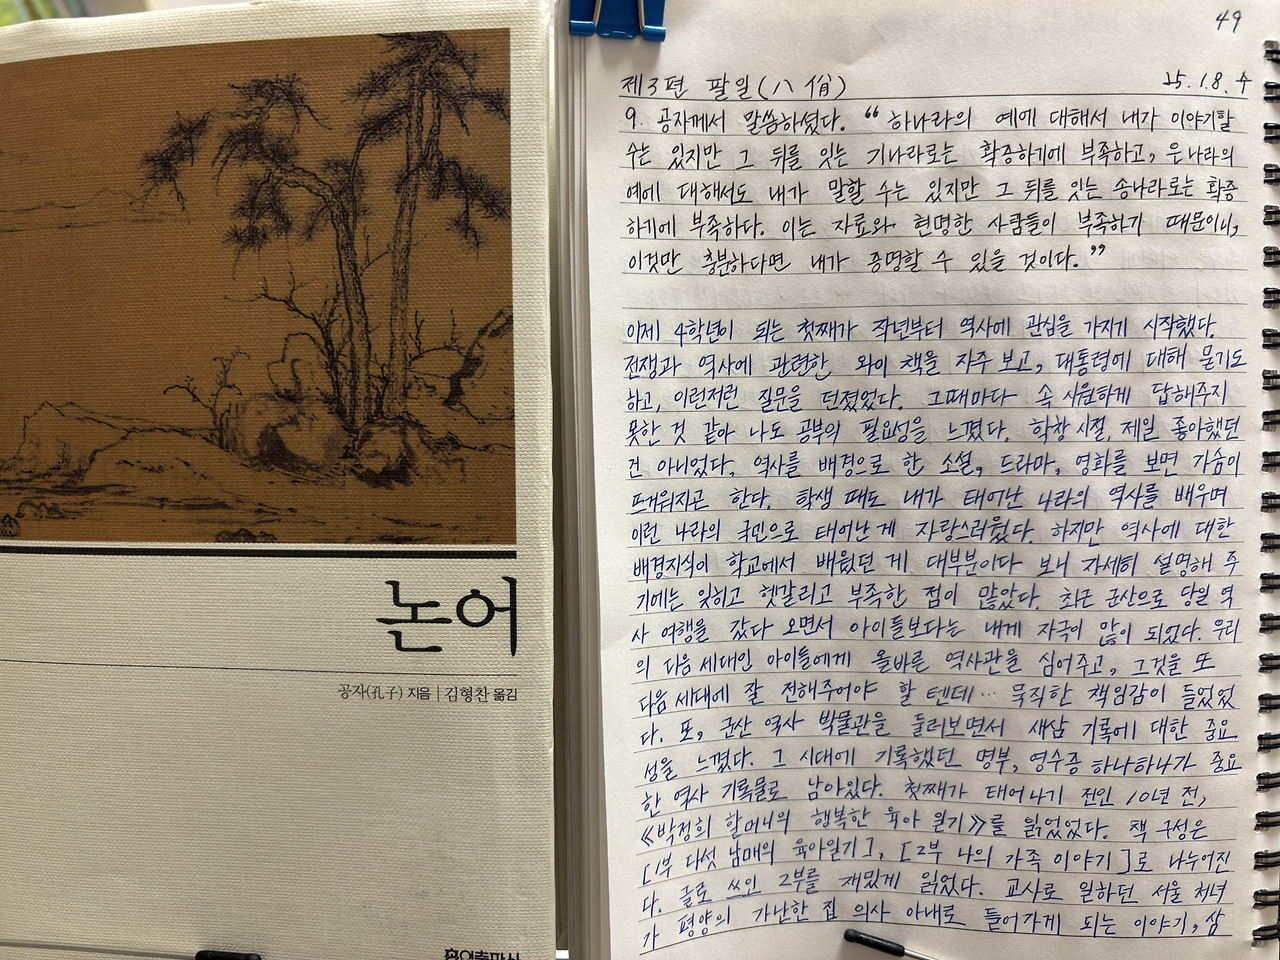 논어
공자(孔子) 지음 | 김형찬 옮김
홍익출판사
49
제3편 팔일(八佾) 25.1.8.수
9. 공자께서 말씀하셨다. “하나라의 예에 대해서 내가 이야기할
수는 있지만 그 뒤를 잇는 기나라로는 확증하기에 부족하고, 은나라의
예에 대해서도 내가 말할 수는 있지만 그 뒤를 잇는 송나라로는 확증
하기에 부족하다. 이는 자료와 현명한 사람들이 부족하기 때문이니,
이것만 충분하다면 내가 증명할 수 있을 것이다.”
이제 4학년이 되는 첫째가 작년부터 역사에 관심을 가지기 시작했다.
전쟁과 역사에 관련한 와이 책을 자주 보고, 대통령에 대해 묻기도
하고, 이런저런 질문을 던졌었다. 그때마다 속 시원하게 답해주지
못한 것 같아 나도 공부의 필요성을 느꼈다. 학창 시절, 제일 좋아했던
건 아니었다. 역사를 배경으로 한 소설, 드라마, 영화를 보면 가슴이
뜨거워지곤 한다. 학생 때도 내가 태어난 나라의 역사를 배우며
이런 나라의 국민으로 태어난 게 자랑스러웠다. 하지만 역사에 대한
배경지식이 학교에서 배웠던 게 대부분이다 보니 자세히 설명해 주
기에는 잊히고 헷갈리고 부족한 점이 많았다. 최근 군산으로 당일 역
사 여행을 갔다 오면서 아이들보다는 내게 자극이 많이 되었다. 우리
의 다음 세대인 아이들에게 올바른 역사관을 심어주고, 그것을 또
다음 세대에 잘 전해주어야 할 텐데… 묵직한 책임감이 들었었
다. 또, 군산 역사 박물관을 둘러보면서 새삼 기록에 대한 중요
성을 느꼈다. 그 시대에 기록했던 명부, 영수증 하나하나가 중요
한 역사 기록물로 남아있다. 첫째가 태어나기 전인 10년 전,
《박정희 할머니의 행복한 육아 일기》를 읽었었다. 책 구성은
[1부 다섯 남매의 육아일기], [2부 나의 가족 이야기]로 나누어진
다. 글로 쓰인 2부를 재밌게 읽었다. 교사로 일하던 서울 처녀
가 평양의 가난한 집 의사 아내로 들어가게 되는 이야기, 삼